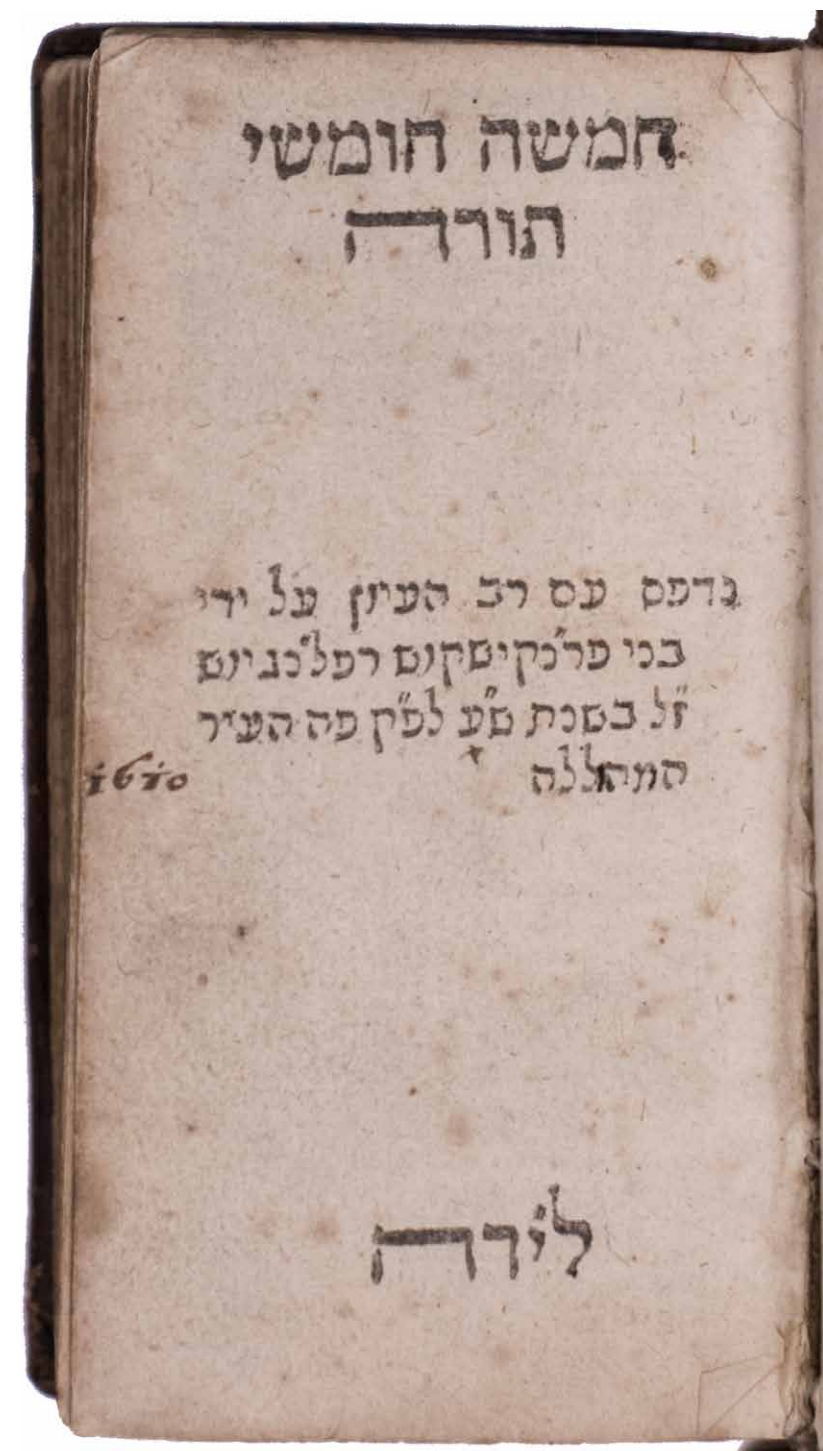 חמשה חומשי
תורה
נדפס עם רב העיון על ידי
בני פרנקישקוש רפלנגיוש
ז"ל בשנת ש"ע לפ"ק פה העיר
המהללה
1610
לידה